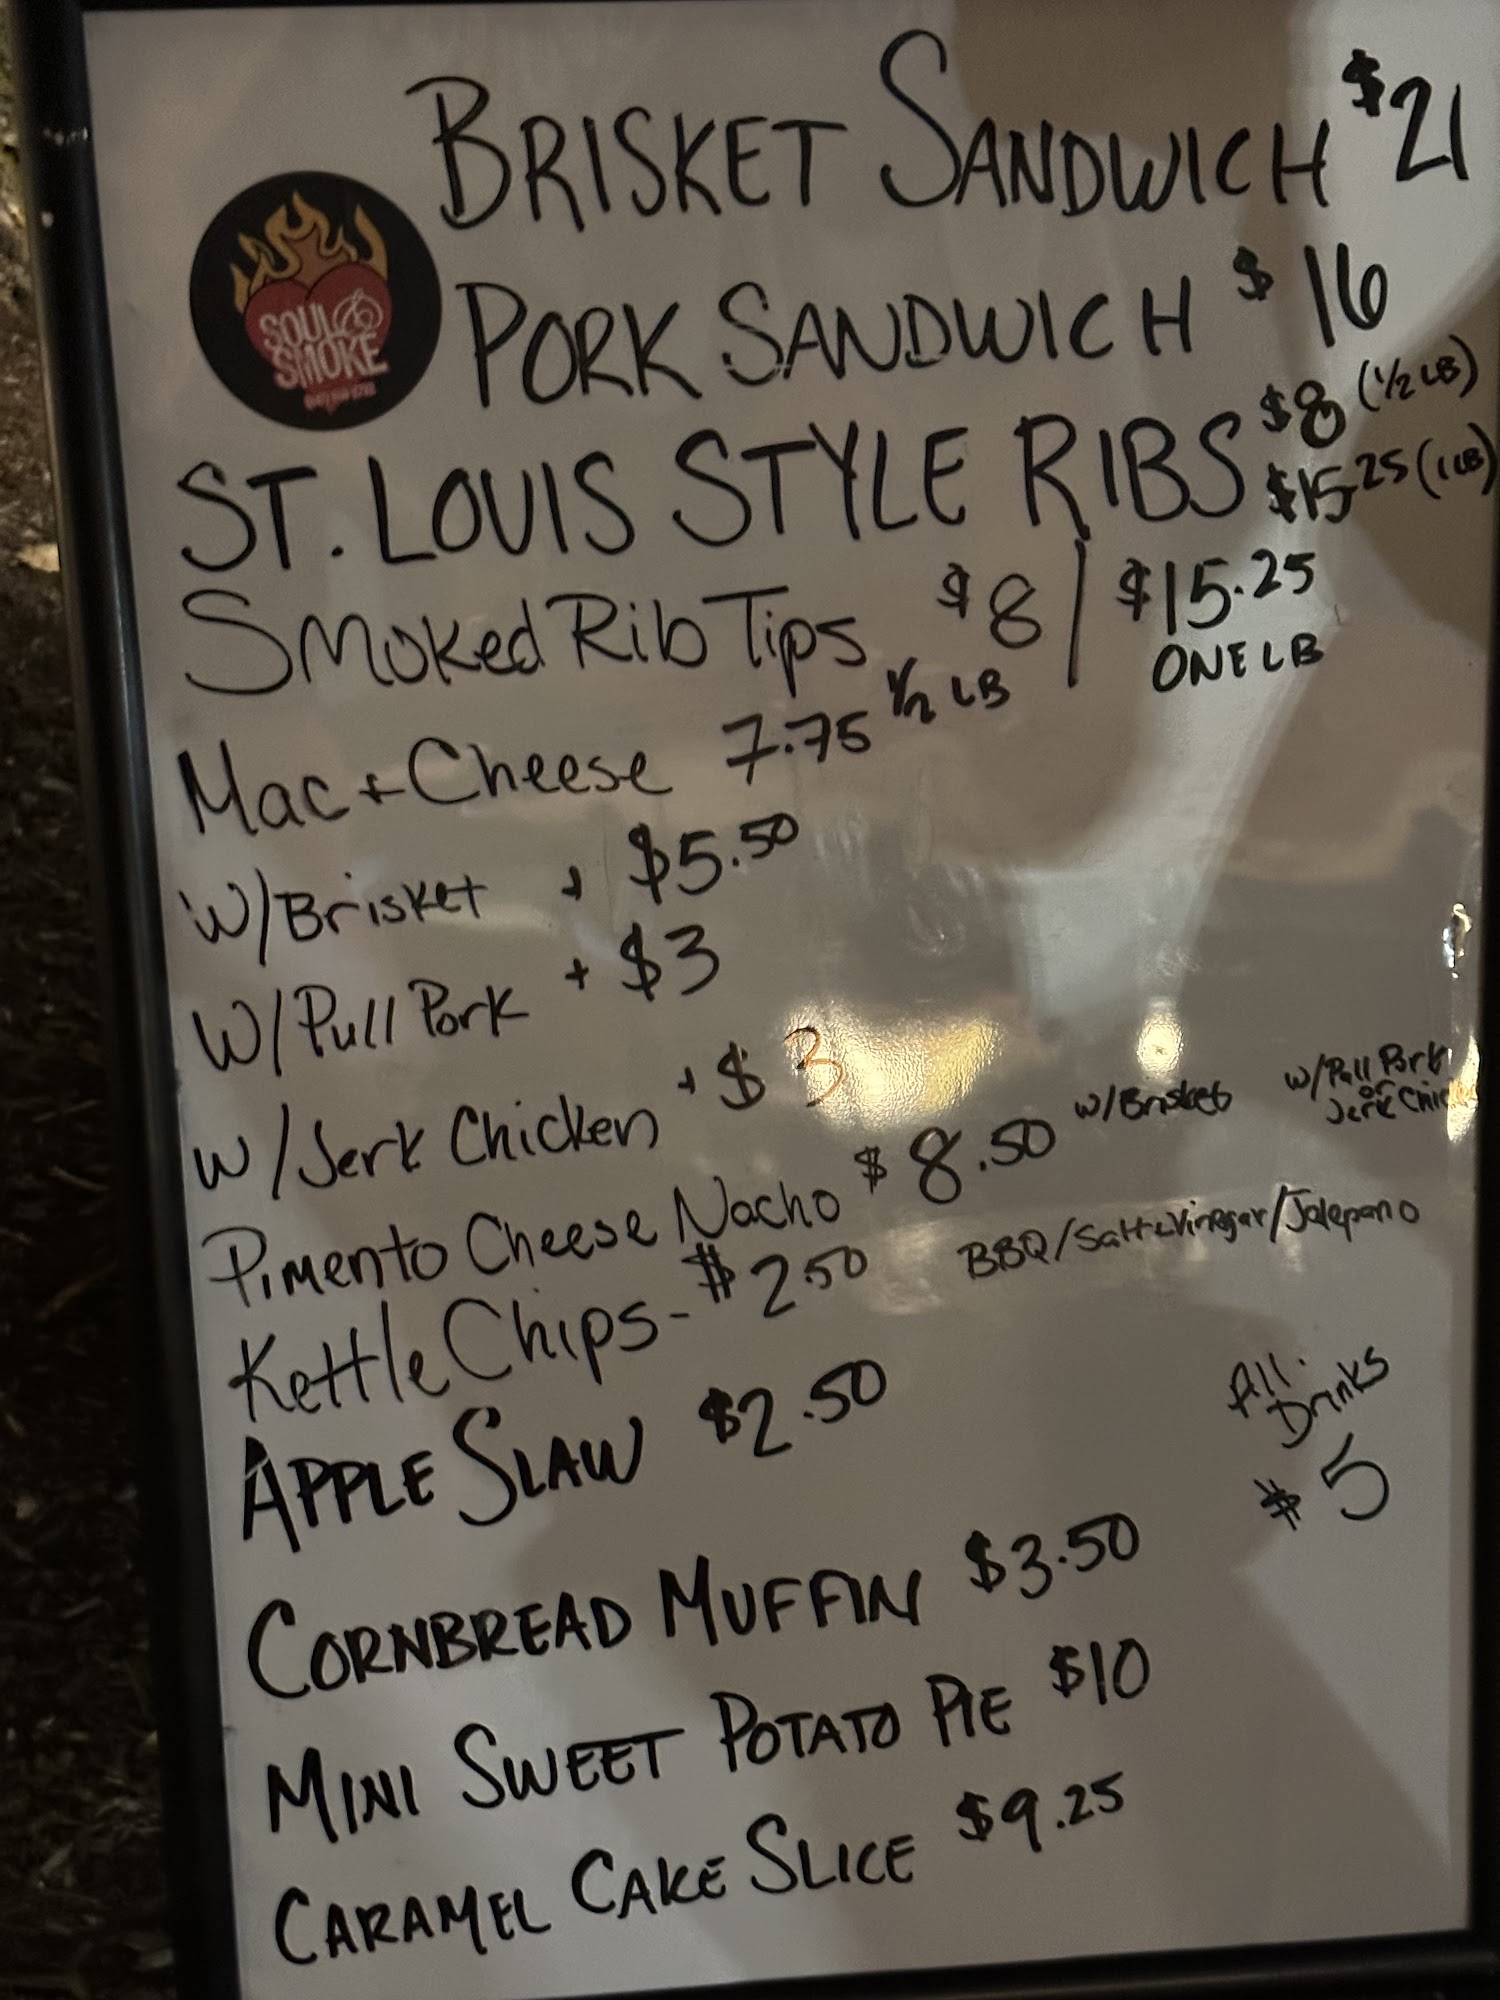 BRISKET SANDWICH $21
SOUL &
SMOKE
PORK SANDWICH $16
ST. LOUIS STYLE RIBS $8 (1/2 LB)
$15.25 (1 LB)
Smoked Rib Tips $8 | $15.25
1/2 LB ONE LB
Mac + Cheese 7.75
W/Brisket + $5.50
W/Pull Pork + $3
W/Jerk Chicken + $3
Pimento Cheese Nacho $8.50 w/Brisket w/Pull Pork
or
Jerk
Kettle Chips - $2.50 BBQ/Salt+Vinegar/Jalepano
APPLE SLAW $2.50
All
Drinks
$5
CORNBREAD MUFFIN $3.50
MINI SWEET POTATO PIE $10
CARAMEL CAKE SLICE $9.25